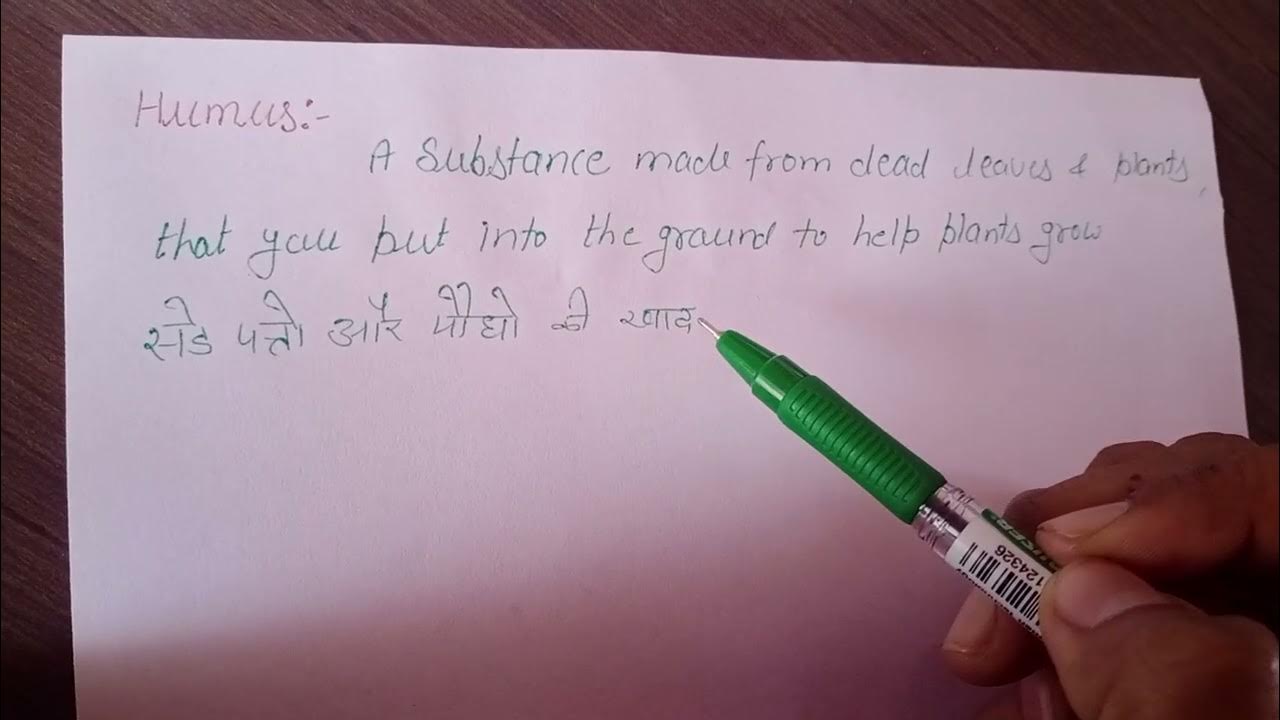 Humus:-
A Substance made from dead leaves & plants,
that you put into the ground to help plants grow
सडे पत्तो और पौधो की खाद
124326